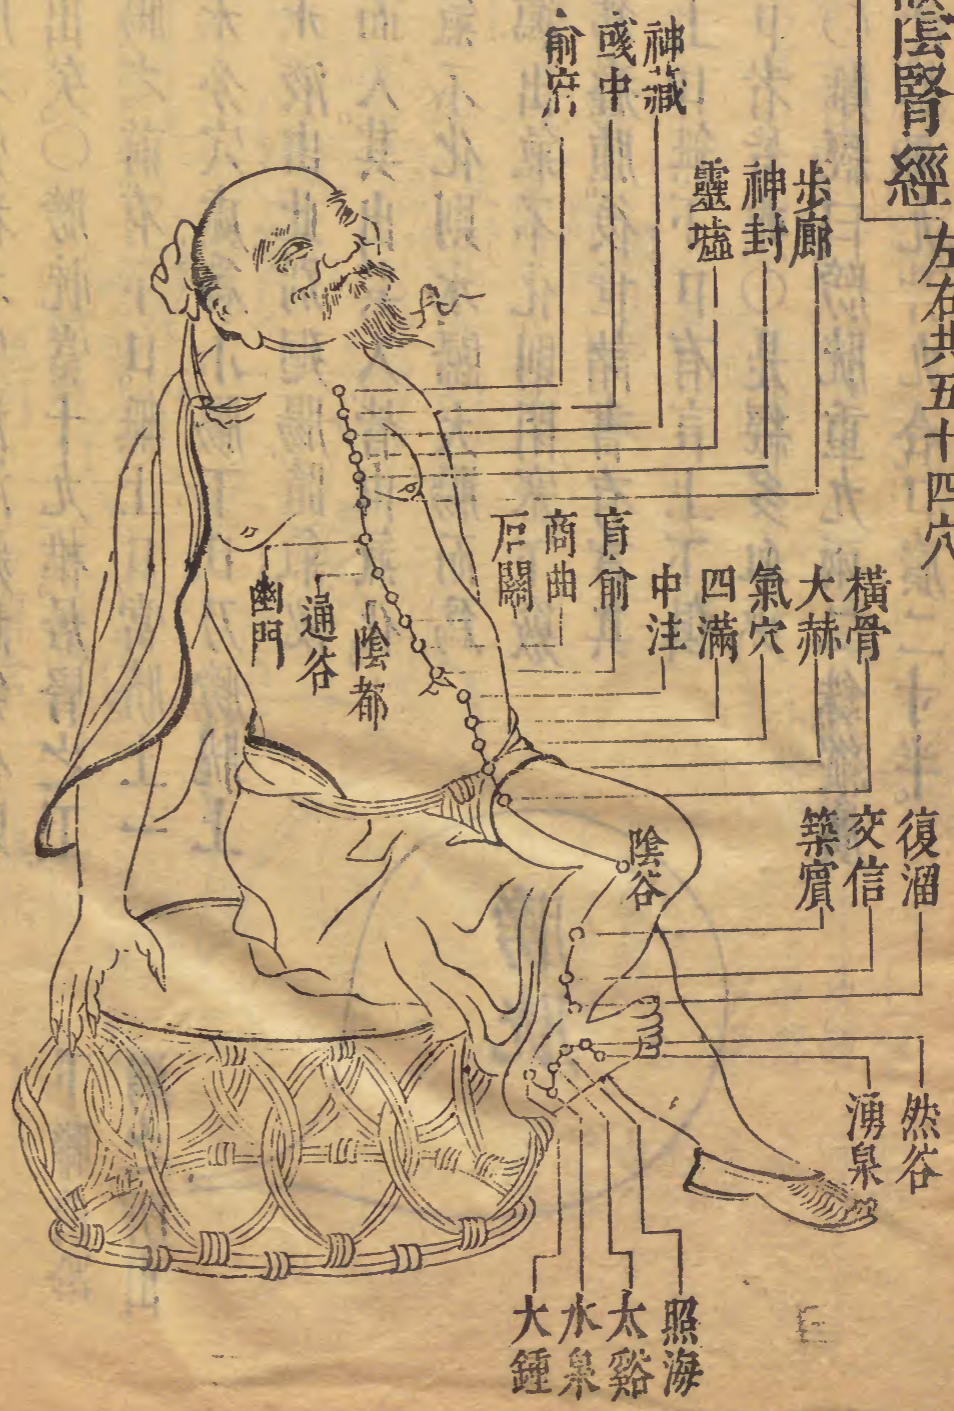 陰腎經
左右共五十四穴
步廊
神封
靈墟
神藏
彧中
俞府
橫骨
大赫
氣穴
四滿
中注
肓俞
商曲
石關
陰都
通谷
幽門
復溜
交信
築賓
陰谷
然谷
湧泉
照海
太谿
水泉
大鍾